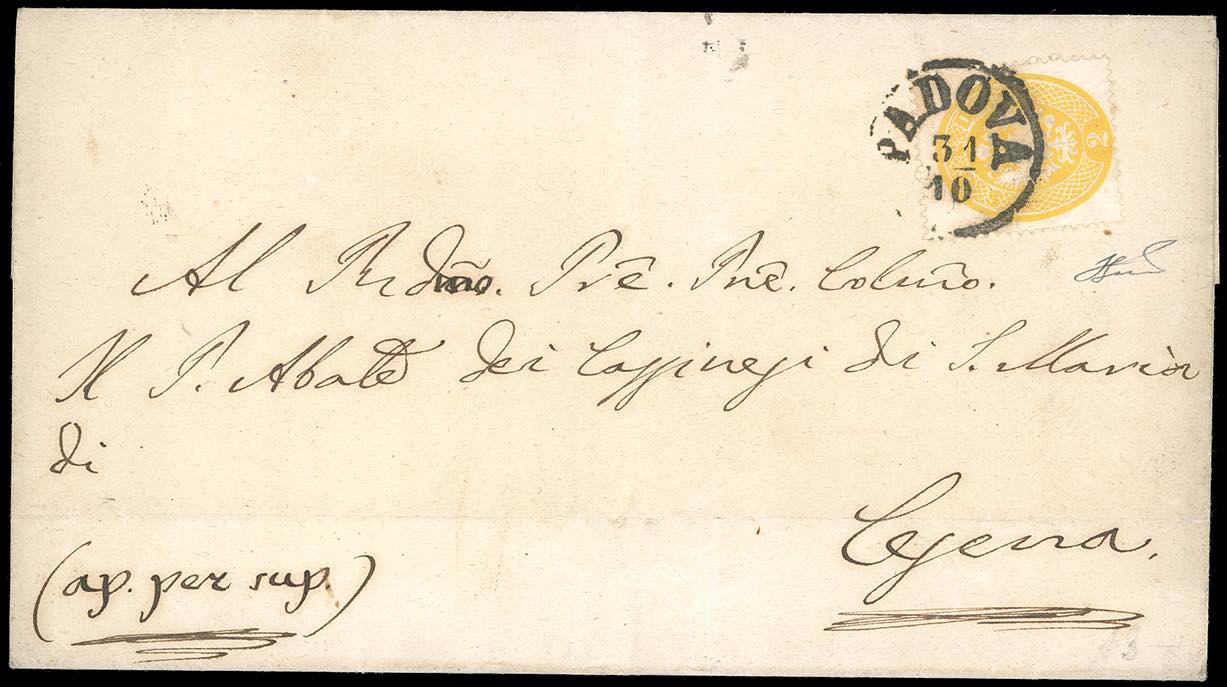 PADOVA
31
10
2
Al Rvdmo. Prē. Pnē. Colmo.
Il P. Abate dei Cassinesi di S. Maria
di
Cesena.
(ap. per sup.)